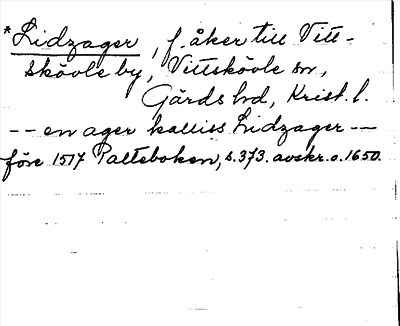 *Lidzager, f. åker till Vitt-
skövle by, Vittskövle sn,
Gärds hd, Krist. l.
-- en ager kalliss Lidzager --
före 1517 Palteboken, s. 373. avskr. o. 1650.